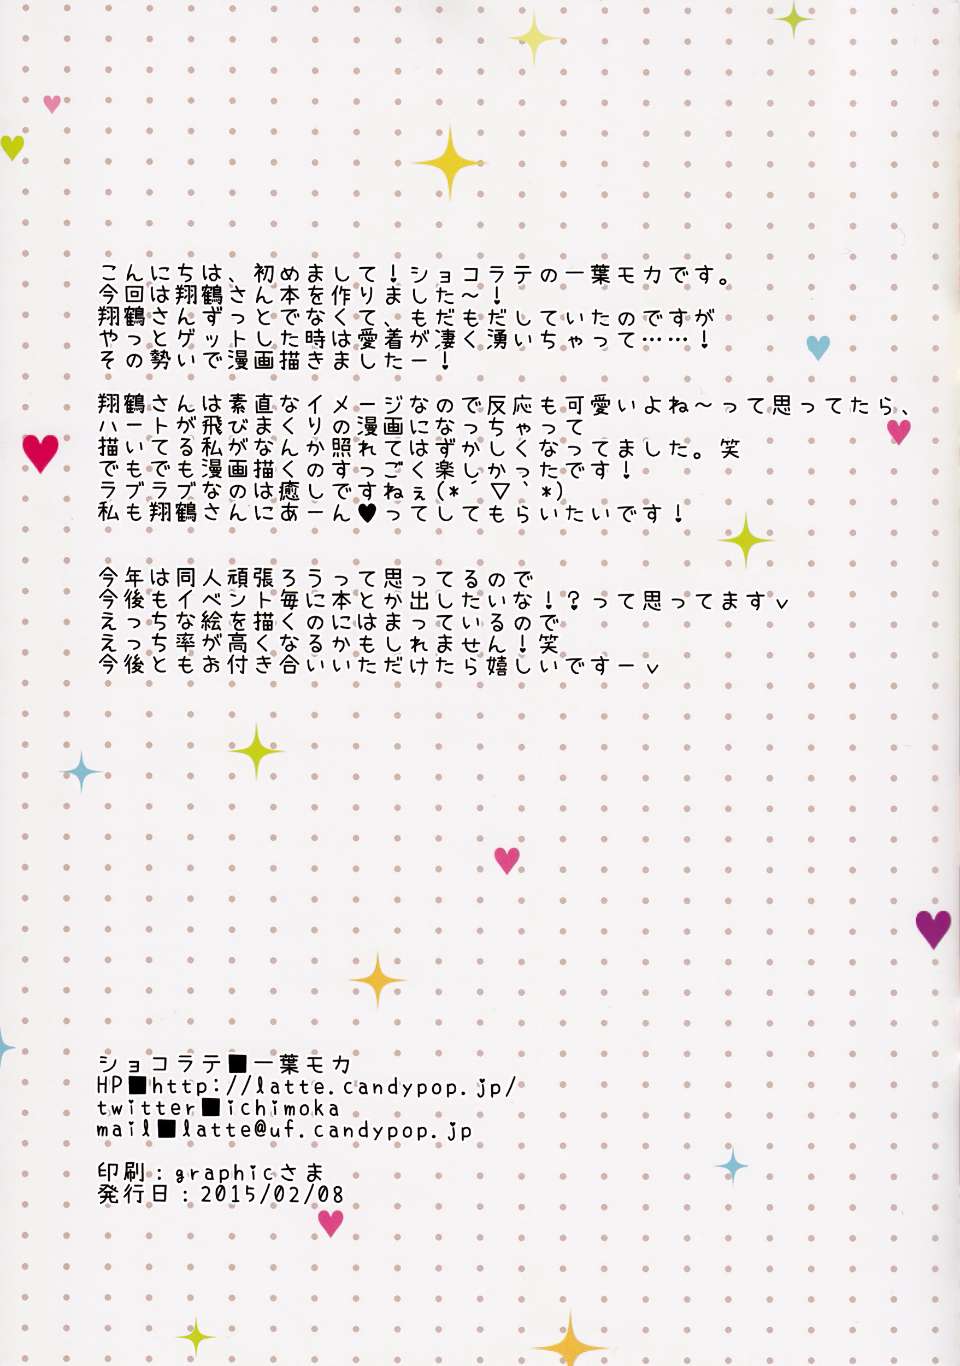 こんにちは、初めまして！ショコラテの一葉モカです。
今回は翔鶴さん本を作りました～！
翔鶴さんずっとでなくて、もだもだしていたのですが
やっとゲットした時は愛着が凄く湧いちゃって……！
その勢いで漫画描きましたー！
翔鶴さんは素直なイメージなので反応も可愛いよね～って思ってたら、
ハートが飛びまくりの漫画になっちゃって
描いてる私がなんか照れてはずかしくなってました。笑
でもでも漫画描くのすっごく楽しかったです！
ラブラブなのは癒しですねぇ(*´▽`*)
私も翔鶴さんにあーん♥ってしてもらいたいです！
今年は同人頑張ろうって思ってるので
今後もイベント毎に本とか出したいな！？って思ってますｖ
えっちな絵を描くのにはまっているので
えっち率が高くなるかもしれません！笑
今後ともお付き合いいただけたら嬉しいですーｖ
ショコラテ■一葉モカ
HP■http://latte.candypop.jp/
twitter■ichimoka
mail■latte@uf.candypop.jp
印刷：graphicさま
発行日：2015/02/08